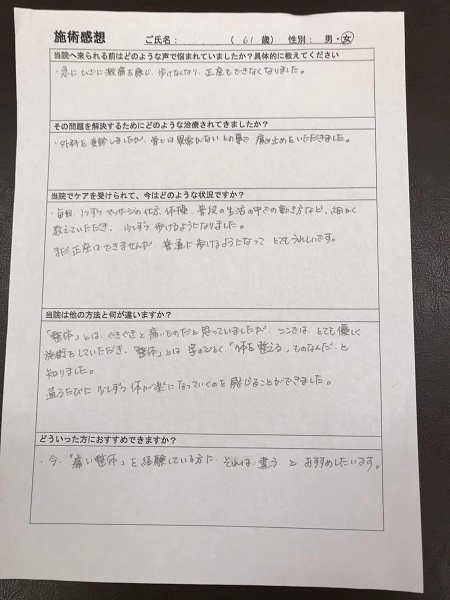 施術感想 ご氏名: (61歳) 性別: 男・女
当院へ来られる前はどのような声で悩まれていましたか?具体的に教えてください
・急に ひざに激痛を感じ、歩けなくなり、正座もできなくなりました。
その問題を解決するためにどのような治療されてきましたか?
・外科を受診しましたが、骨には異常がない との事で 痛み止めをいただきました。
当院でケアを受けられて、今はどのような状況ですか?
・毎回、1つずつ マッサージの仕方、体操、普段の生活の中での動き方など、細かく
教えていただき、少しずつ 歩けるようになりました。
まだ正座はできませんが、普通に歩けるようになって とてもうれしいです。
当院は他の方法と何が違いますか?
「整体」とは、ぐきぐきと痛いものだと思っていましたが、ここでは、とても優しく
施術をしていただき、「整体」とは 字のごとく「体を整える」ものなんだ と
知りました。
通うたびに 少しずつ 体が楽になっていくのを感じることができました。
どういった方におすすめできますか?
・今、「痛い整体」を経験している方に それは 違う と おすすめしたいです。